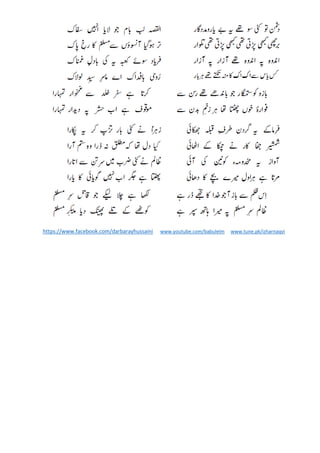 دشمن تو کئی سو تھے یہ بے یارومددگار
برچھی کبھی پڑتی تھی کبھی پڑتی تھی تلوار
اندوہ پہ اندوہ تھے آزار پہ آزار
کس یاس سے اک اک کا منہ تکتے تھے ہر بار
بازو کو ستمگار جو باندھے تھے رسن سے
فوارۂ خوں چھٹتا تھا ہر زخم بدن سے
القصہ لب بام جو لایا انہیں سفاک
تر ہوگیا آنسوؤں سے مسلم کا رخ پاک
فریاد سوئے کعبہ یہ کی بادل غمناک
اے مرے سید لولاک
کرتا ہے سفر خلد سے غمخوار تمہارا
موقوف ہے اب حشر پہ دیدار تمہارا
فرماکے یہ گردن طرف قبلہ جھکائی
شمشیر جفا کار نے چمکا کے اٹھائی
آواز یہ مخدومہء کونین کی آئی
مرتا ہے ہراول میرے بچے کا دھائی
اس ظلم سے باز آ جو خدا کا تجھے ڈر ہے
ظالم سر مسلم پہ میرا ہاتھ سپر ہے
زہرا نے کئی بار تڑپ کر یہ پکارا
کیا دل تھا کہ مطلق نہ ڈرا وہ ستم آرا
ظالم نے کئی ضرب میں سر تن سے اتارا
پھٹتا ہے جگر اب نہیں گویائی کا یارا
لکھا ہے چلا لیکے جو قاتل سر مسلم
کوٹھے کے تلے پھینک دیا پیکر مسلم
https://www.facebook.com/darbarayhussaini www.youtube.com/babulelm www.tune.pk/izharnaqvi